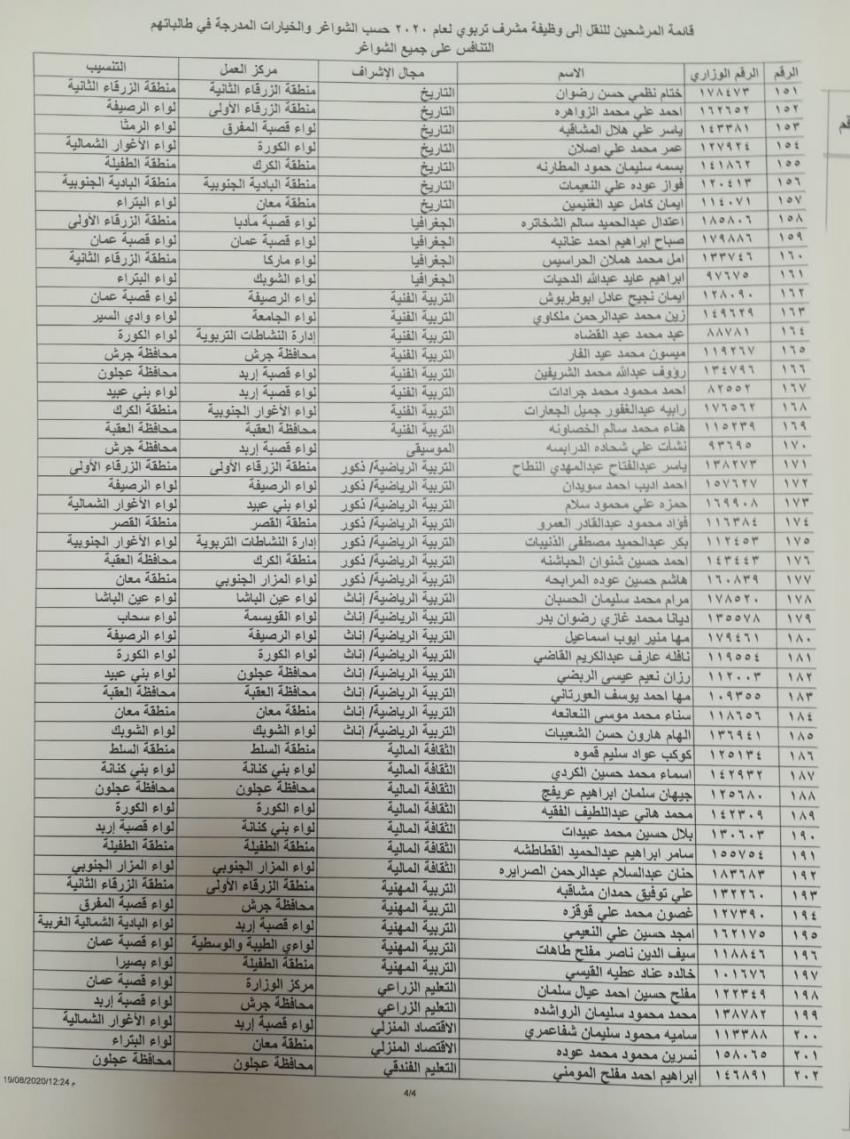 قائمة المرشحين للنقل إلى وظيفة مشرف تربوي لعام ٢٠٢٠ حسب الشواغر والخيارات المدرجة في طلباتهم
التنافس على جميع الشواغر
الرقم الرقم الوزاري الاسم مجال الإشراف مركز العمل التنسيب
١٥١ ١٧٨٤٧٣ ختام نظمي حسن رضوان التاريخ منطقة الزرقاء الثانية منطقة الزرقاء الثانية
١٥٢ ١٦٢٦٥٢ احمد علي محمد الزواهره التاريخ منطقة الزرقاء الأولى لواء الرصيفة
١٥٣ ١٤٣٣٨١ ياسر علي هلال المشاقبه التاريخ لواء قصبة المفرق لواء الرمثا
١٥٤ ١٢٧٩٢٤ عمر محمد علي اصلان التاريخ لواء الكورة لواء الأغوار الشمالية
١٥٥ ١٤١٨٦٢ بسمه سليمان حمود المطارنه التاريخ منطقة الكرك منطقة الطفيلة
١٥٦ ١٢٠٤١٣ فواز عوده علي النعيمات التاريخ منطقة البادية الجنوبية منطقة البادية الجنوبية
١٥٧ ١١٤٠٧١ ايمان كامل عيد الغنيمين التاريخ منطقة معان لواء البتراء
١٥٨ ١٨٥٨٠٦ اعتدال عبدالحميد سالم الشخاتره الجغرافيا لواء قصبة مادبا منطقة الزرقاء الأولى
١٥٩ ١٧٩٨٨٦ صباح ابراهيم احمد عنانبه الجغرافيا لواء قصبة عمان لواء قصبة عمان
١٦٠ ١٣٣٧٤٦ امل محمد هملان الحراسيس الجغرافيا لواء ماركا منطقة الزرقاء الثانية
١٦١ ٩٧٦٧٥ ابراهيم عايد عبدالله الدحيات الجغرافيا لواء الشوبك لواء البتراء
١٦٢ ١٢٨٠٩٠ ايمان نجيح عادل ابوطربوش التربية الفنية لواء الرصيفة لواء قصبة عمان
١٦٣ ١٤٩٦٢٩ زين محمد عبدالرحمن ملكاوي التربية الفنية لواء الجامعة لواء وادي السير
١٦٤ ٨٨٧٨١ عبد محمد عبد القضاه التربية الفنية إدارة النشاطات التربوية لواء الكورة
١٦٥ ١١٩٢٦٧ ميسون محمد عيد الفار التربية الفنية محافظة جرش محافظة جرش
١٦٦ ١٣٤٧٩٦ رؤوف عبدالله محمد الشريفين التربية الفنية لواء قصبة إربد محافظة عجلون
١٦٧ ٨٢٥٥٢ احمد محمود محمد جرادات التربية الفنية لواء قصبة إربد لواء بني عبيد
١٦٨ ١٧٦٥٦٢ رابيه عبدالغفور جميل الجعارات التربية الفنية لواء الأغوار الجنوبية منطقة الكرك
١٦٩ ١١٥٢٣٩ هناء محمد سالم الخصاونه التربية الفنية محافظة العقبة محافظة العقبة
١٧٠ ٩٣٦٩٥ نشأت علي شحاده الدرابسه الموسيقى لواء قصبة إربد محافظة جرش
١٧١ ١٣٨٢٧٣ ياسر عبدالفتاح عبدالمهدي النطاح التربية الرياضية/ ذكور منطقة الزرقاء الأولى منطقة الزرقاء الأولى
١٧٢ ١٥٧٦٢٧ احمد اديب احمد سويدان التربية الرياضية/ ذكور لواء الرصيفة لواء الرصيفة
١٧٣ ١٦٩٩٠٨ حمزه علي محمود سلام التربية الرياضية/ ذكور لواء بني عبيد لواء الأغوار الشمالية
١٧٤ ١١٦٣٨٤ فؤاد محمود عبدالقادر العمرو التربية الرياضية/ ذكور منطقة القصر منطقة القصر
١٧٥ ١١٢٤٥٣ بكر عبدالحميد مصطفى الذنيبات التربية الرياضية/ ذكور إدارة النشاطات التربوية لواء الأغوار الجنوبية
١٧٦ ١٤٣٤٤٣ احمد حسين شنوان الحباشنه التربية الرياضية/ ذكور منطقة الكرك محافظة العقبة
١٧٧ ١٦٠٨٣٩ هاشم حسين عوده المرابحه التربية الرياضية/ ذكور لواء المزار الجنوبي منطقة معان
١٧٨ ١٧٨٥٢٠ مرام محمد سليمان الحسبان التربية الرياضية/ إناث لواء عين الباشا لواء عين الباشا
١٧٩ ١٣٥٥٧٨ ديانا محمد غازي رضوان بدر التربية الرياضية/ إناث لواء القويسمة لواء سحاب
١٨٠ ١٧٩٤٦١ مها منير ايوب اسماعيل التربية الرياضية/ إناث لواء الرصيفة لواء الرصيفة
١٨١ ١١٩٥٥٤ نافله عارف عبدالكريم القاضي التربية الرياضية/ إناث لواء الكورة لواء الكورة
١٨٢ ١١٢٠٠٣ رزان نعيم عيسى الربضي التربية الرياضية/ إناث محافظة عجلون لواء بني عبيد
١٨٣ ١٠٩٣٥٥ مها احمد يوسف العورتاني التربية الرياضية/ إناث محافظة العقبة محافظة العقبة
١٨٤ ١١٨٦٥٦ سناء محمد موسى النعانعه التربية الرياضية/ إناث منطقة معان منطقة معان
١٨٥ ١٣٦٩٤١ الهام هارون حسن الشعيبات التربية الرياضية/ إناث لواء الشوبك لواء الشوبك
١٨٦ ١٢٥١٣٤ كوكب عواد سليم قموه الثقافة المالية منطقة السلط منطقة السلط
١٨٧ ١٤٢٩٣٢ اسماء محمد حسين الكردي الثقافة المالية لواء بني كنانة لواء بني كنانة
١٨٨ ١٢٥٦٨٠ جيهان سلمان ابراهيم عريفج الثقافة المالية محافظة عجلون محافظة عجلون
١٨٩ ١٤٢٣٠٩ محمد هاني عبداللطيف الفقيه الثقافة المالية لواء الكورة لواء الكورة
١٩٠ ١٣٠٦٠٣ بلال حسين محمد عبيدات الثقافة المالية لواء بني كنانة لواء قصبة إربد
١٩١ ١٥٥٧٥٤ سامر ابراهيم عبدالحميد القطاطشه الثقافة المالية منطقة الطفيلة منطقة الطفيلة
١٩٢ ١٨٣٦٨٣ حنان عبدالسلام عبدالرحمن الصرايره الثقافة المالية لواء المزار الجنوبي لواء المزار الجنوبي
١٩٣ ١٣٢٢٦٠ علي توفيق حمدان مشاقبه التربية المهنية منطقة الزرقاء الأولى منطقة الزرقاء الثانية
١٩٤ ١٢٧٣٩٠ غصون محمد علي قوقزه التربية المهنية محافظة جرش لواء قصبة المفرق
١٩٥ ١٦٢١٧٥ امجد حسين علي النعيمي التربية المهنية لواء قصبة إربد لواء البادية الشمالية الغربية
١٩٦ ١١٨٨٤٦ سيف الدين ناصر مفلح طاهات التربية المهنية لواءي الطيبة والوسطية لواء قصبة عمان
١٩٧ ١٠١٦٧٦ خالده عناد عطيه القيسي التربية المهنية منطقة الطفيلة لواء بصيرا
١٩٨ ١٢٢٣٤٩ مفلح حسين احمد عيال سلمان التعليم الزراعي مركز الوزارة لواء قصبة عمان
١٩٩ ١٣٨٧٨٢ محمد محمود سليمان الرواشده التعليم الزراعي محافظة جرش لواء قصبة إربد
٢٠٠ ١١٣٣٨٨ ساميه محمود سليمان شفاعمري الاقتصاد المنزلي لواء قصبة إربد لواء الأغوار الشمالية
٢٠١ ١٥٨٠٦٥ نسرين محمود محمد عوده الاقتصاد المنزلي منطقة معان لواء البتراء
٢٠٢ ١٤٦٨٩١ ابراهيم احمد مفلح المومني التعليم الفندقي محافظة عجلون محافظة عجلون
19/08/2020/12:24 م
4/4